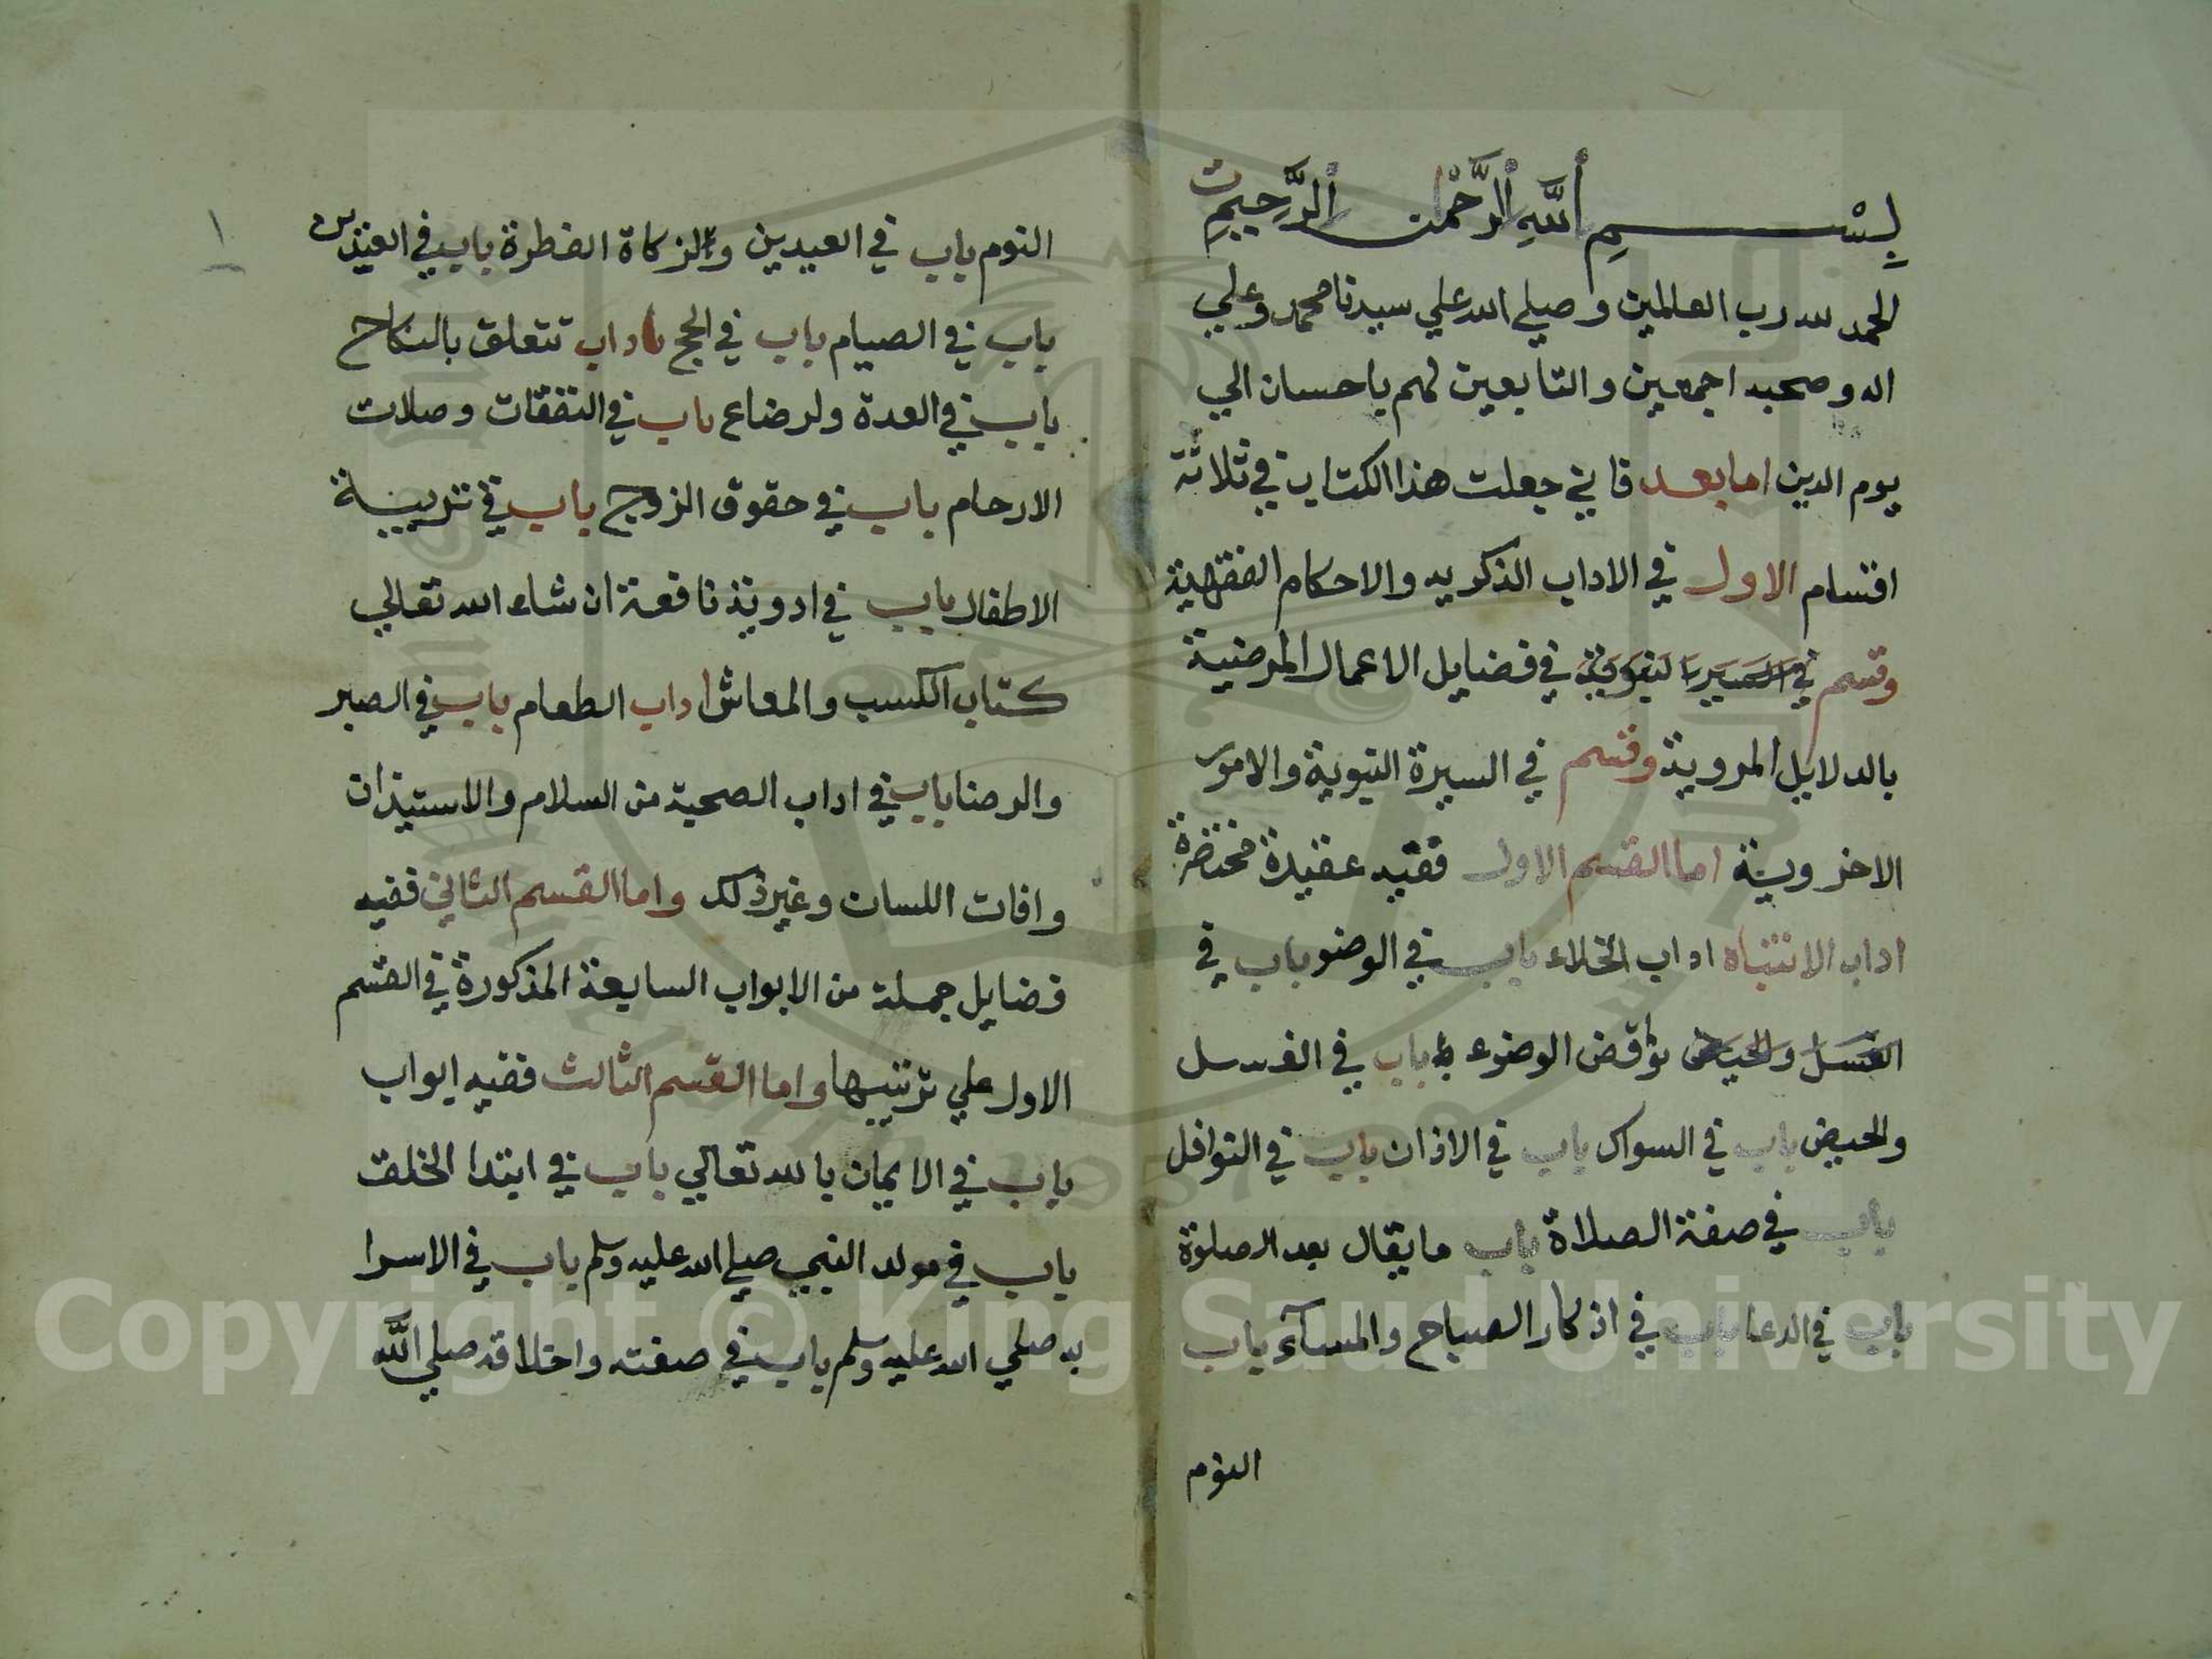 بِسْمِ اللَّهِ الرَّحْمٰنِ الرَّحِيمِ
الحمد لله رب العالمين وصلي الله علي سيدنا محمد وعلي
اله وصحبه اجمعين والتابعين لهم باحسان الي
يوم الدين اما بعد فاني جعلت هذا الكتاب في ثلاثة
اقسام الاول في الاداب الذكريه والاحكام الفقهية
وقسم في فضايل الاعمال المرضية
بالدلايل المروية وقسم في السيرة النبوية والامور
الاخروية اما القسم الاول ففيه عقيدة مختصرة
اداب الانتباه اداب الخلاء باب في الوضو باب في
الغسل والحيض نواقض الوضوء باب في الغسل
والحيض باب في السواك باب في الاذان باب في النوافل
باب في صفة الصلاة باب ما يقال بعد الصلوة
باب في الدعا باب في اذكار الصباح والمسآء باب
النوم
١
النوم باب في العيدين والزكاة الفطرة باب في
باب في الصيام باب في الحج اداب تتعلق بالنكاح
باب في العدة ولرضاع باب في النفقات وصلات
الارحام باب في حقوق الزوج باب في تربية
الاطفال باب في ادوية نافعة ان شاء الله تعالي
كتاب الكسب والمعاش اداب الطعام باب في الصبر
والرضا باب في اداب الصحبة من السلام والاستيذان
وافات اللسان وغير ذلك واما القسم الثاني ففيه
فضايل جملة من الابواب السابعة المذكورة في القسم
الاول علي ترتيبها واما القسم الثالث ففيه ابواب
باب في الايمان بالله تعالي باب في ابتدا الخلق
باب في مولد النبي صلي الله عليه وسلم باب في الاسرا
به صلي الله عليه وسلم باب في صفته واخلاقه صلي الله
Copyright © King Saud University
1957